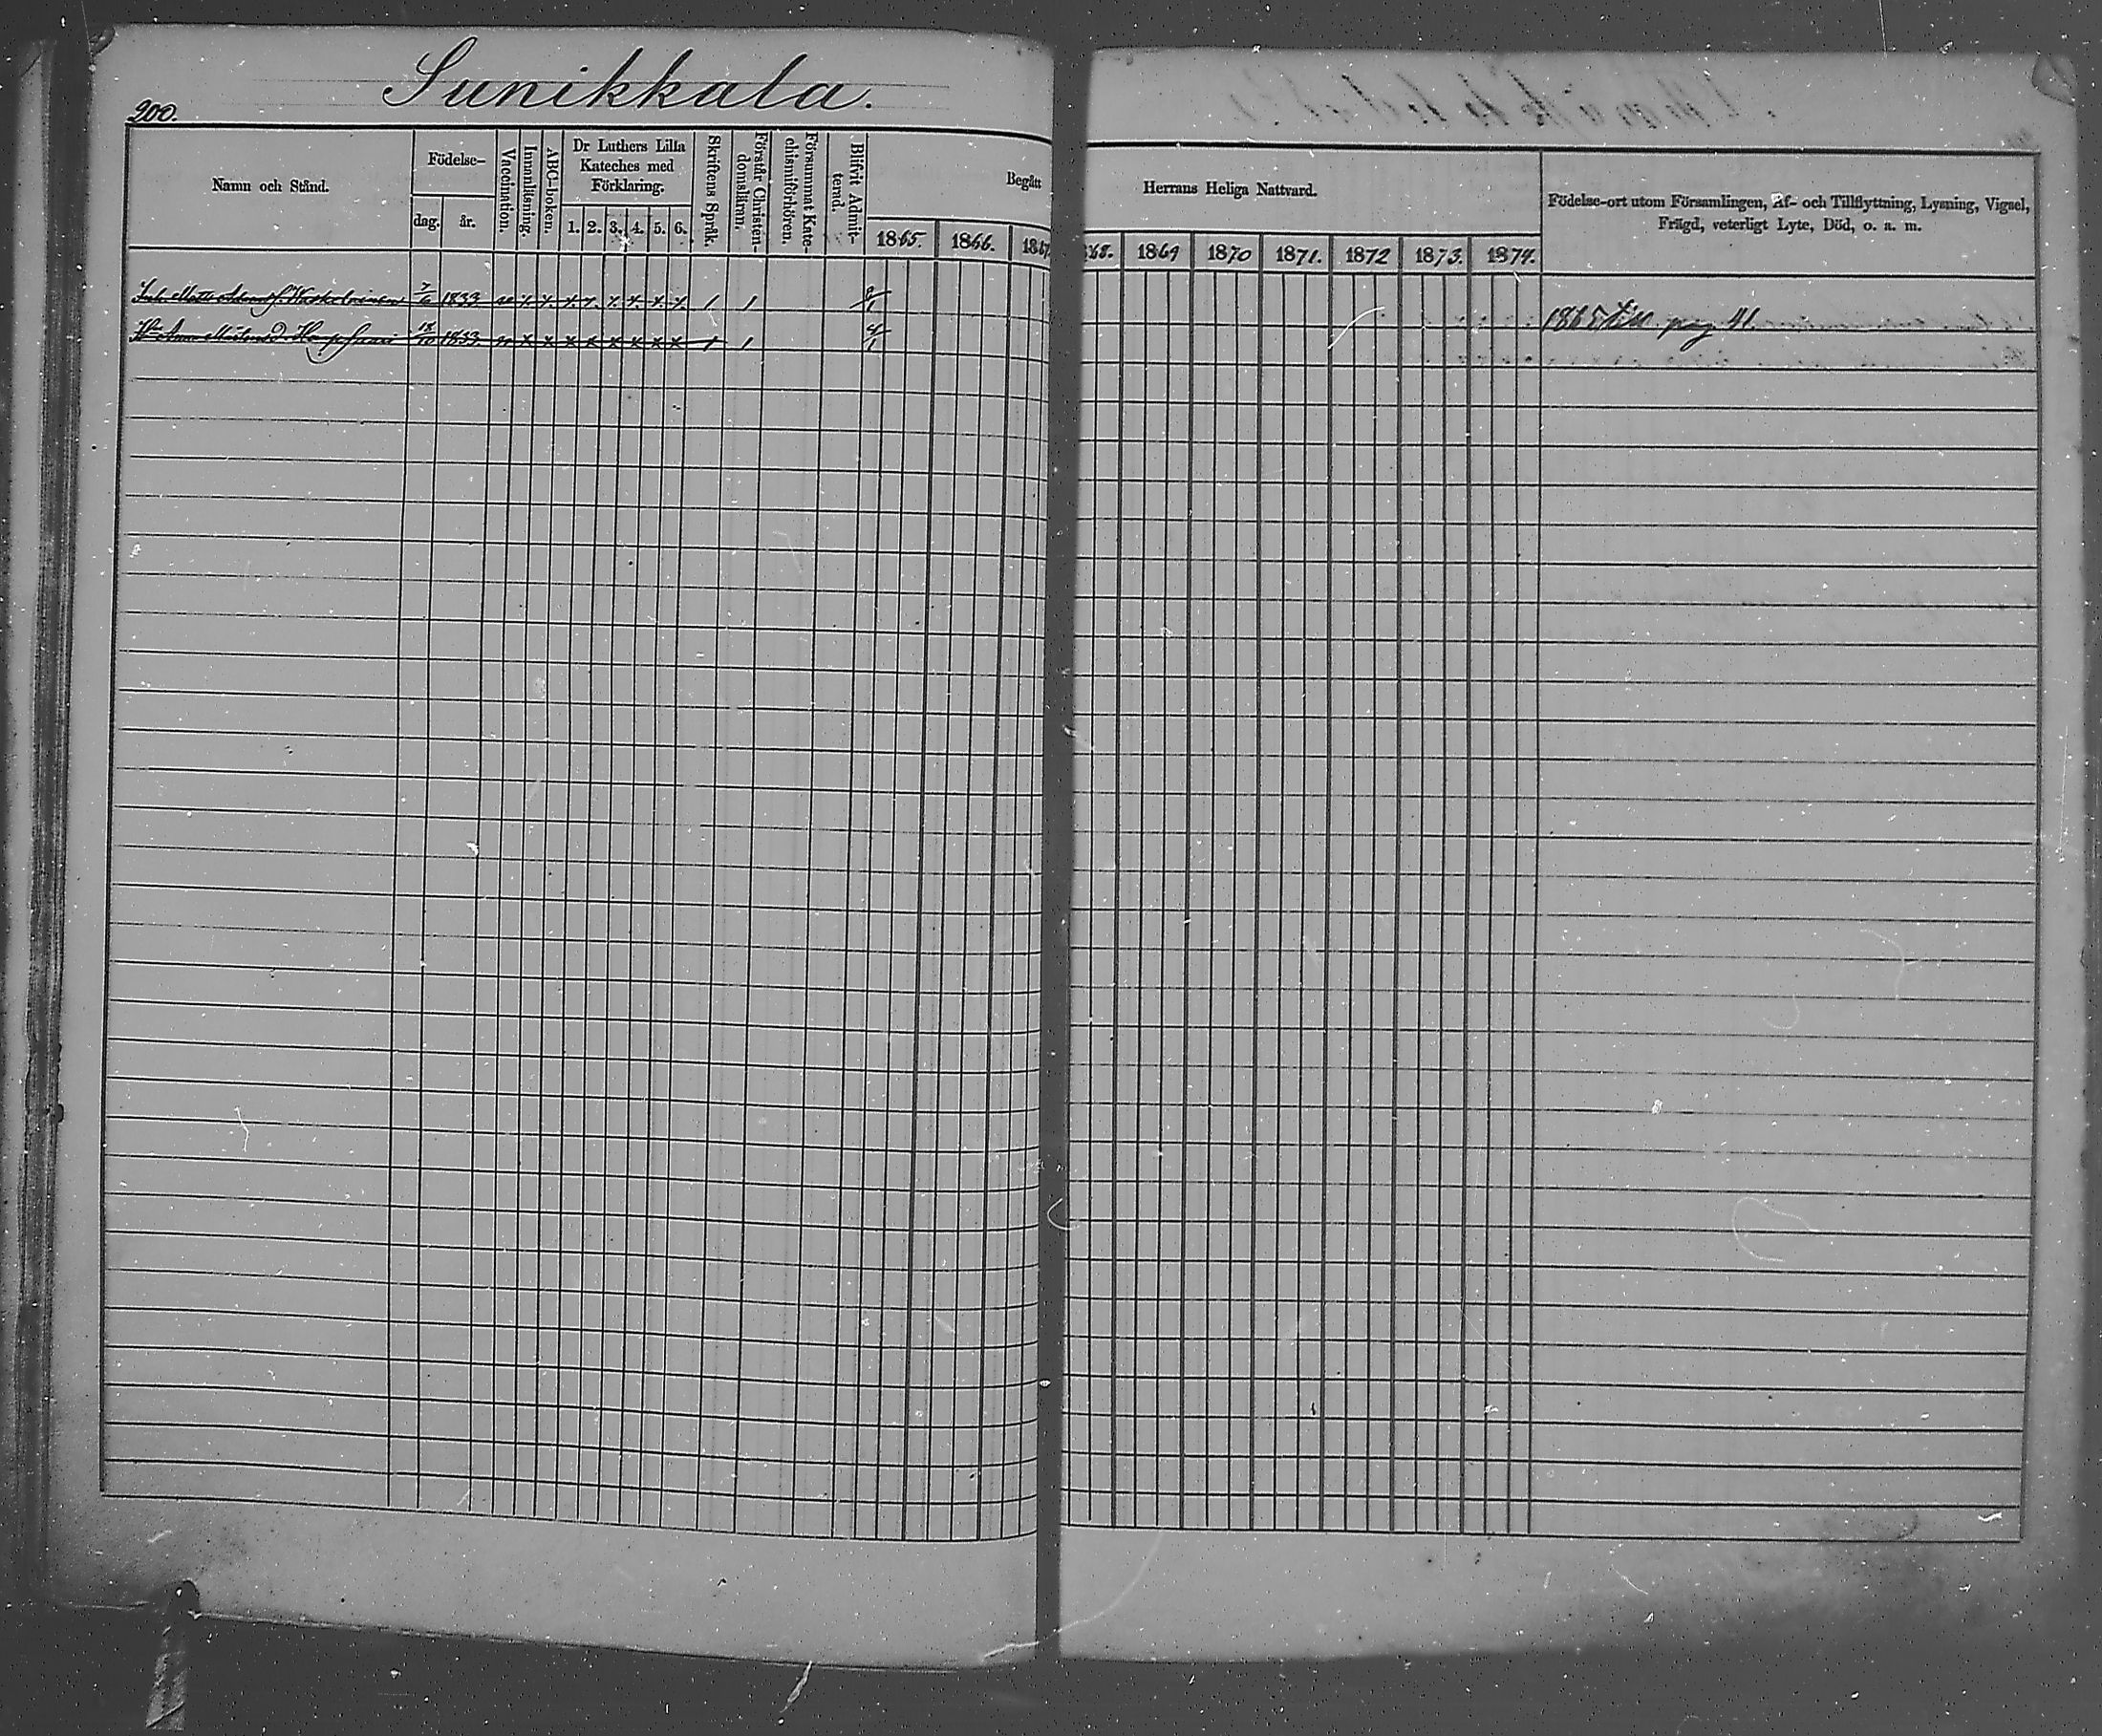 Sunikkala.
200.
Namn och Stånd.
Födelse-
dag.
år.
Vaccination.
Innanläsning.
ABC-boken.
Dr Luthers Lilla Kateches med Förklaring.
1. 2. 3. 4. 5. 6.
Skriftens Språk.
Förstår Christendomsläran.
Försummat Katechismiförhören.
Blifvit Admitterad.
Begått Herrans Heliga Nattvard.
1865. 1866. 1867. 1868. 1869 1870 1871. 1872 1873. 1874.
Födelse-ort utom Församlingen, Af- och Tillflyttning, Lysning, Vigsel,
Frägd, veterligt Lyte, Död, o. a. m.
Inh. Matts 7/6 1833 1 1
Anna 18/10 1833. x x x x x x x x 1 1
1865 till pag 41.